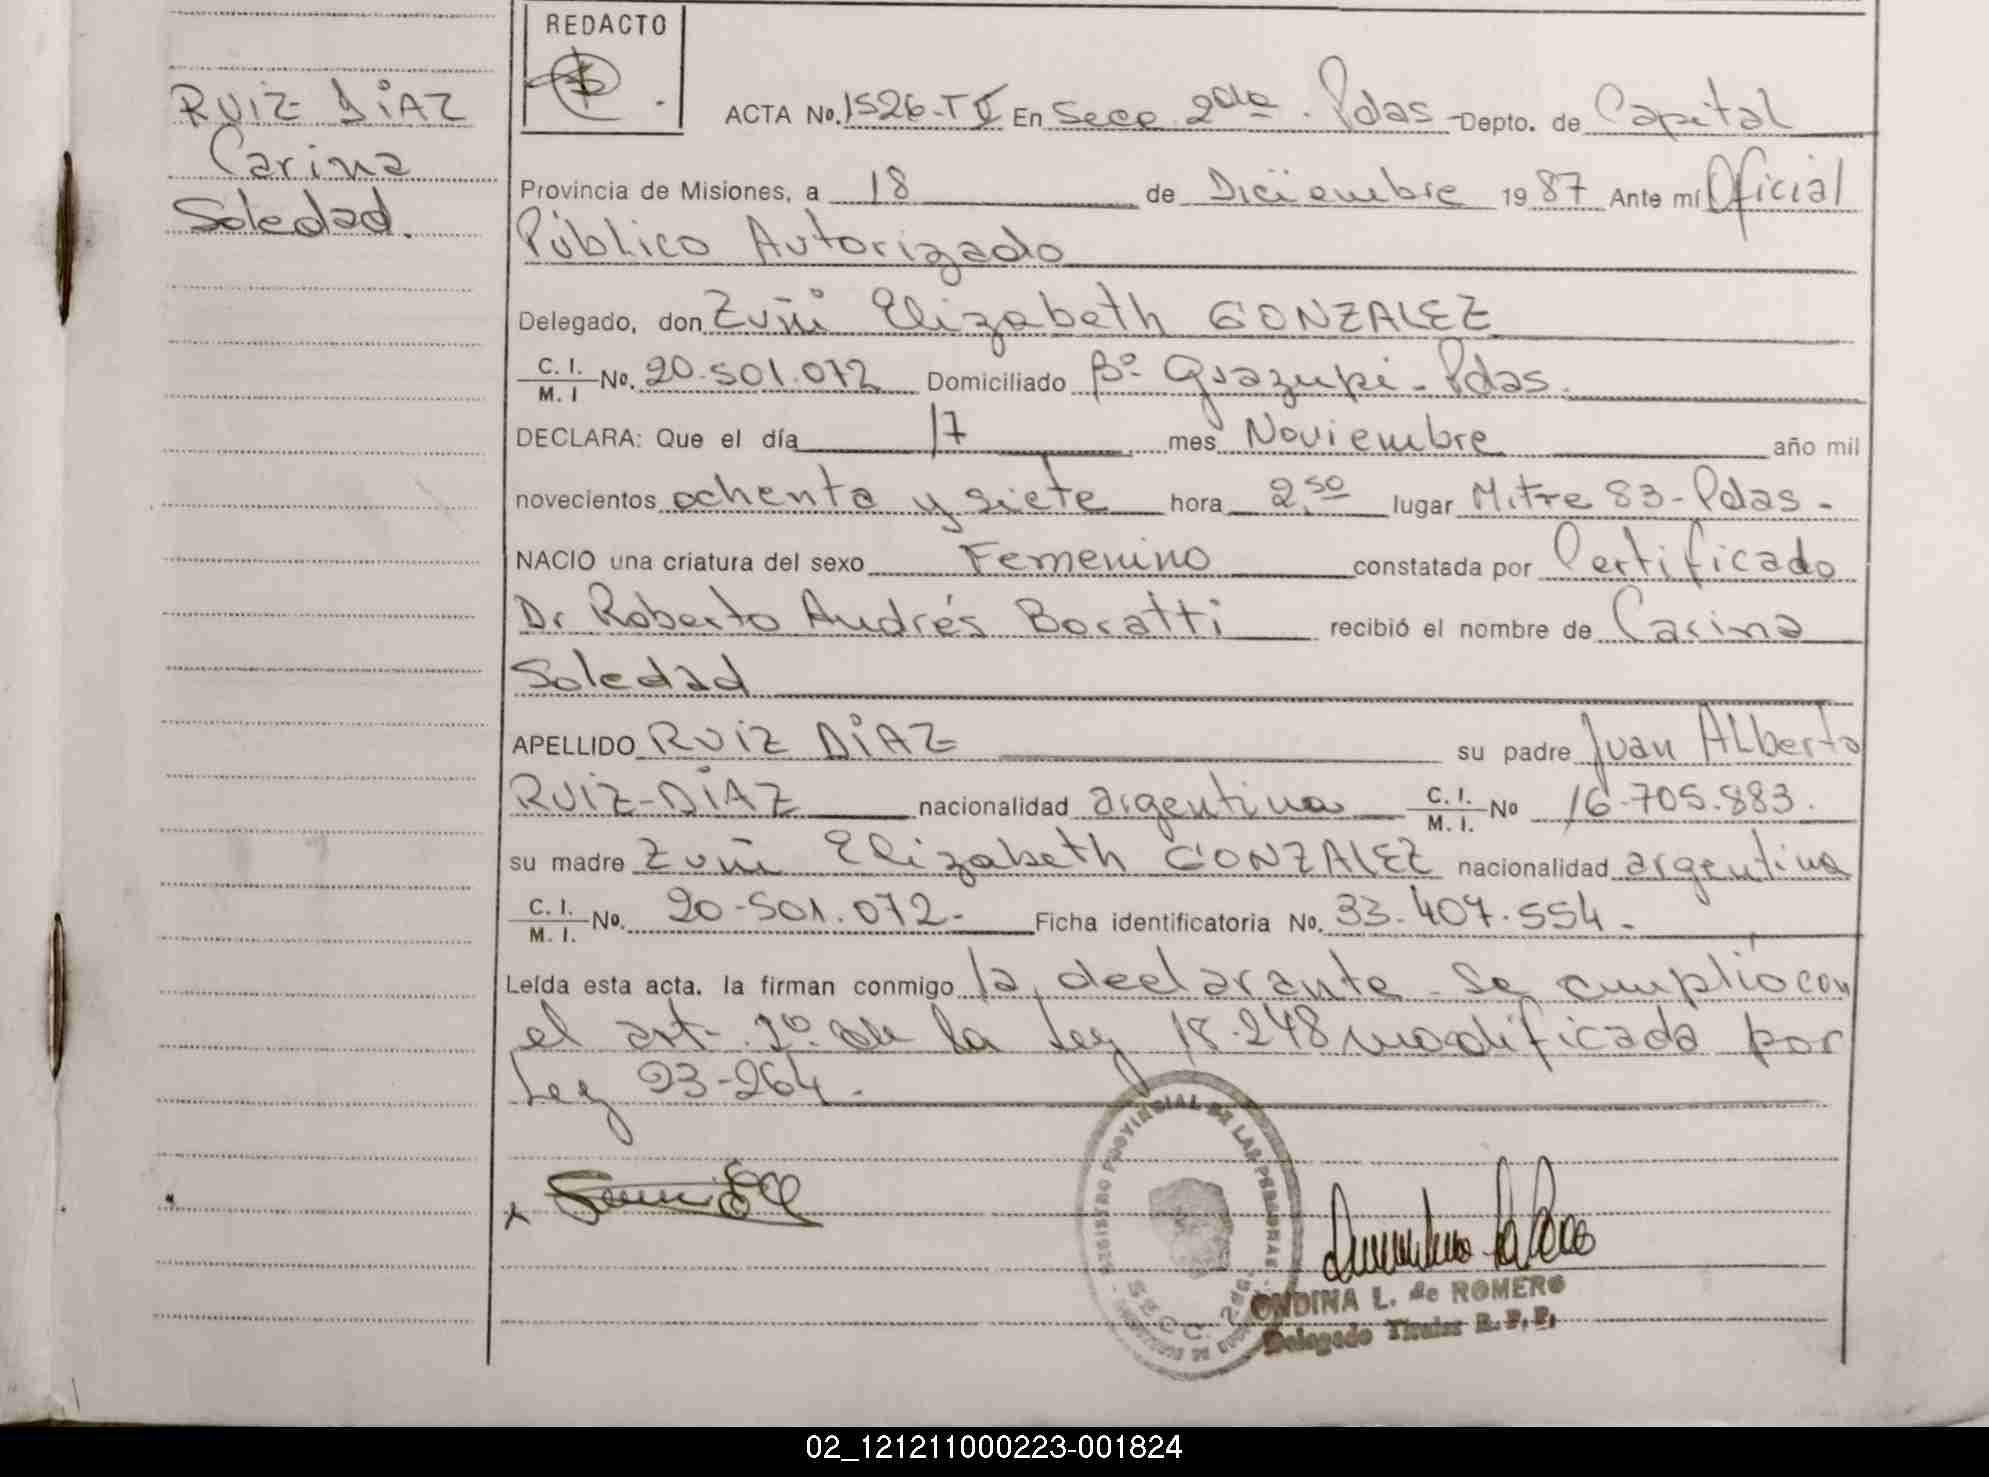 REDACTO
RUIZ DIAZ
Carina
Soledad.
ACTA No. 1526-TV En Secc 2da. Pdas - Depto. de Capital
Provincia de Misiones, a 18 de Diciembre 1987 Ante mí Oficial
Público Autorizado
Delegado, don Zuñi Elizabeth GONZALEZ
C. I.
M. I No. 20.501.072 Domiciliado Bº Guazupi - Pdas.
DECLARA: Que el día 17 mes Noviembre año mil
novecientos ochenta y siete hora 2,50 lugar Mitre 83 - Pdas -
NACIO una criatura del sexo Femenino constatada por Certificado
Dr Roberto Andrés Boratti recibió el nombre de Carina
Soledad
APELLIDO RUIZ DIAZ su padre Juan ALberto
RUIZ-DIAZ nacionalidad argentina C. I.
M. I. No 16.705.883.
su madre Zuñi Elizabeth GONZALEZ nacionalidad argentina
C. I.
M. I. No. 20-501.072- Ficha identificatoria No. 33.407.554.-
Leída esta acta. la firman conmigo la declarante - Se cumplio con
el art. 2º. de la Ley 18.248 modificada por
Ley 23-264.-
REGISTRO PROVINCIAL DE LAS PERSONAS
SECC. 2da
ONDINA L. de ROMERO
Delegado Titular R. P. P.
02_121211000223-001824